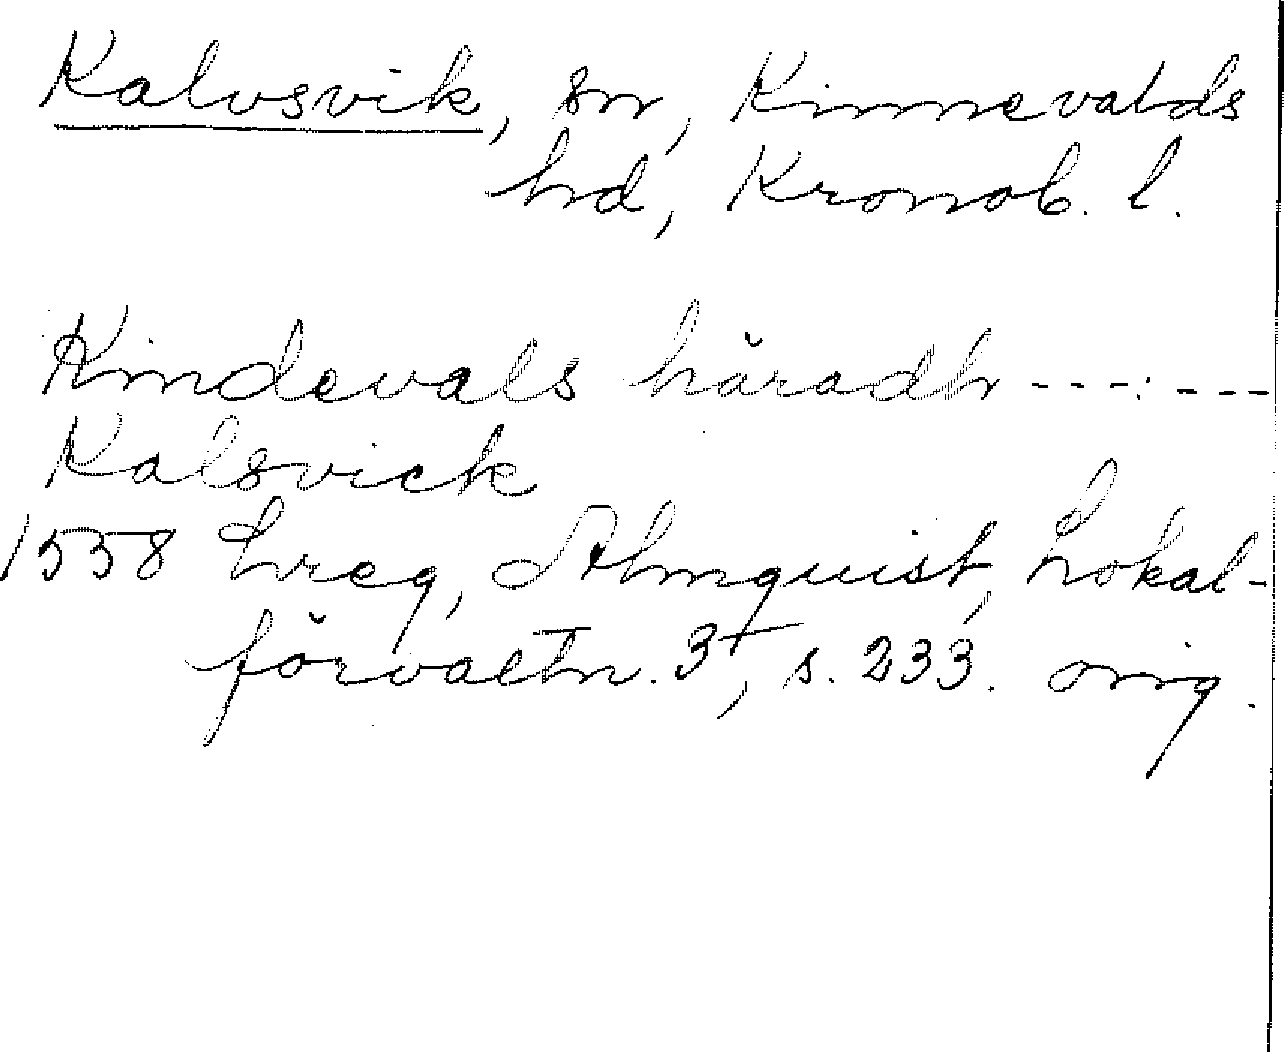 Kalvsvik, sn, Kinnevalds
hd, Kronob. l.
Kindevals häradh ---:---
Kalsvick
1558 Lreg, Almquist, Lokal-
förvaltn. 3⁺, s. 233. orig.